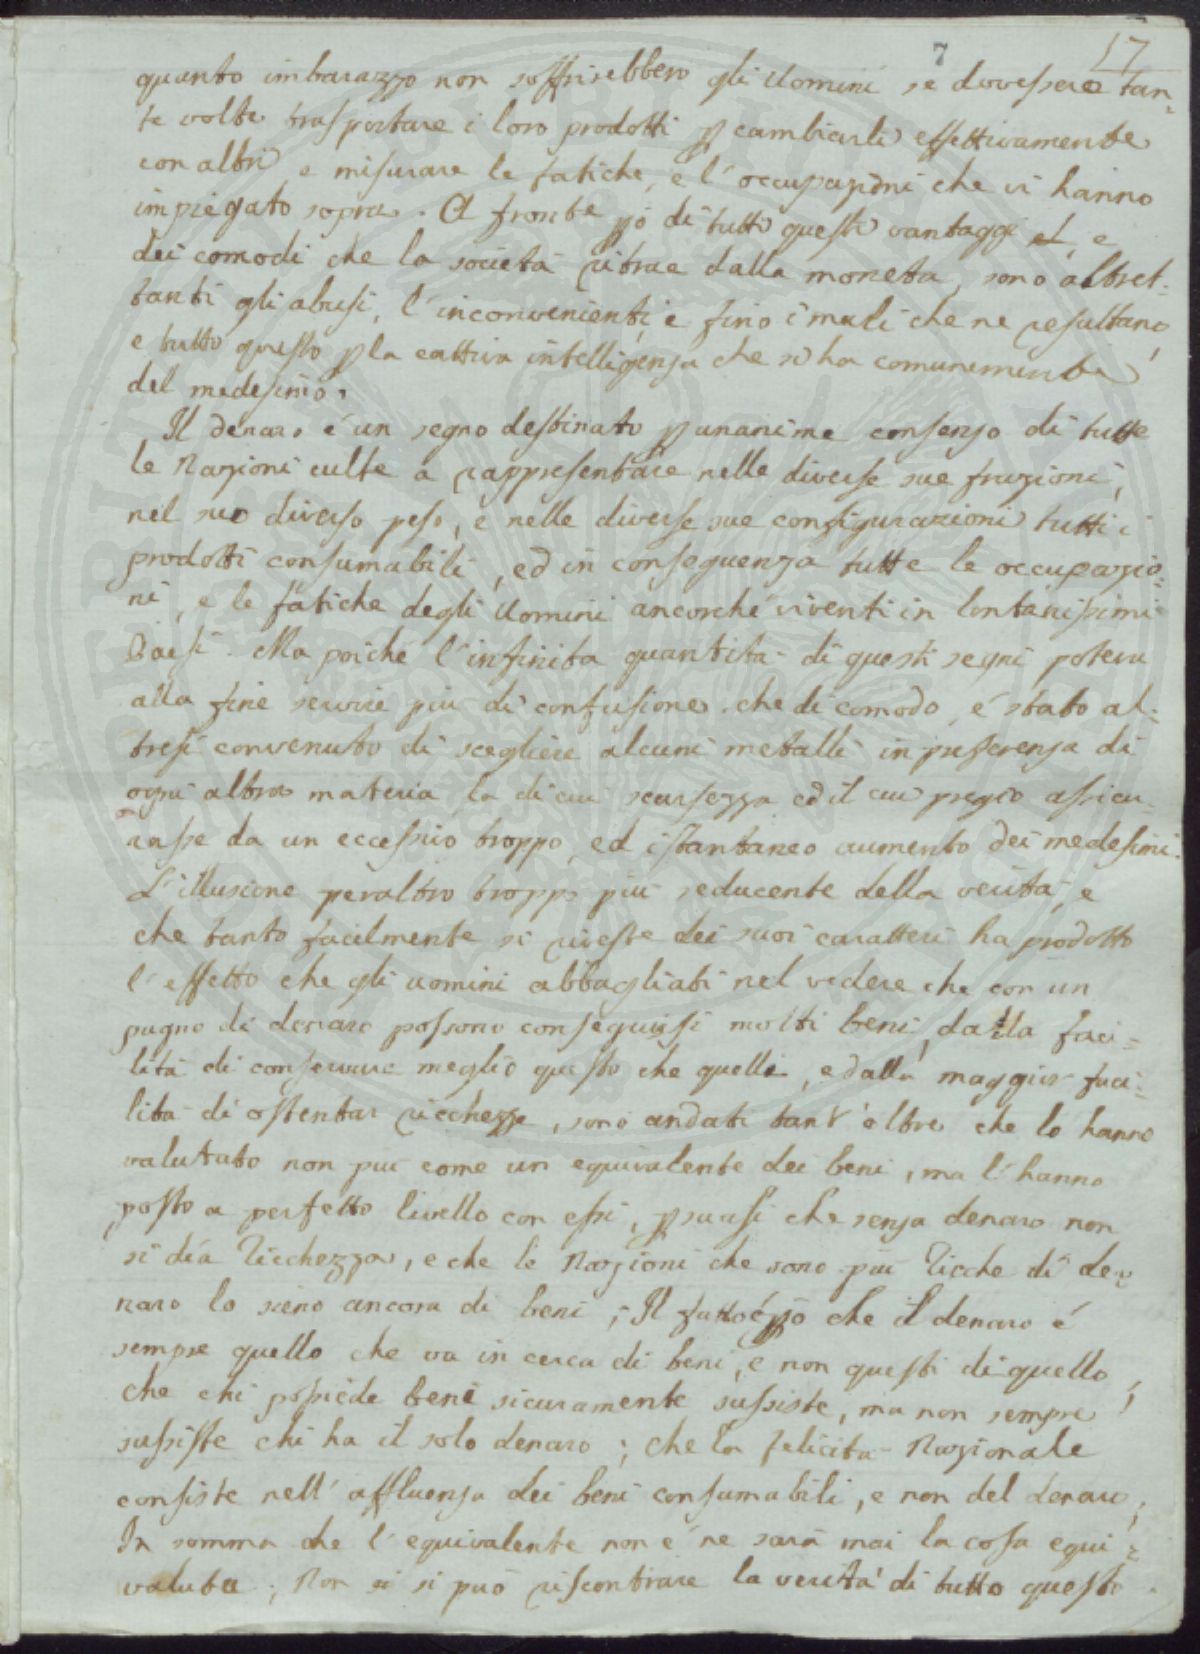 7 17
quanto imbarazzo non soffrirebbero gli Uomini se dovessero tan-
te volte trasportare i loro prodotti p cambiarli effettivamente
con altri, e misurare le fatiche, e l'occupazioni che vi hanno
impiegato sopra. A fronte pò di tutti questi vantaggi, e
dei comodi che la società ritrae dalla moneta, sono altret-
tanti gli abusi, l'inconvenienti, e fino i mali che ne resultano,
e tutto questo p la cattiva intelligenza che si ha comunemente
del medesimo.
Il denaro é un segno destinato p unanime consenso di tutte
le Nazioni culte a rappresentare nelle diverse sue frazioni,
nel suo diverso peso, e nelle diverse sue configurazioni tutti i
prodotti consumabili, ed in conseguenza tutte le occupazio-
ni, e le fatiche degli Uomini ancorché viventi in lontanissimi
Paesi. Ma poiché l'infinita quantità di questi segni poteva
alla fine servire più di confusione che di comodo, é stato al-
tresí convenuto di scegliere alcuni metalli in preferenza di
ogni altra materia la di cui scarsezza ed il cui pregio assicu-
rasse da un eccessivo troppo, ed istantaneo aumento dei medesimi.
L'illusione peraltro troppo più seducente della verità, e
che tanto facilmente si riveste dei suoi caratteri ha prodotto
l'effetto che gli uomini abbagliati nel vedere che con un
pugno di denaro possono conseguirsi molti beni, dalla faci-
lità di conservare meglio questo che quelli, e dalla maggior faci-
lità di ostentar ricchezze, sono andati tant'oltre che lo hanno
valutato non più come un equivalente dei beni, ma l'hanno
posto a perfetto livello con essi, psuasi che senza denaro non
si dia Ricchezza, e che le Nazioni che sono più Ricche di de-
naro lo sieno ancora di beni; Il fatto é pò che il denaro é
sempre quello che va in cerca di beni, e non questi di quello,
che chi possiede beni sicuramente sussiste, ma non sempre
sussiste chi ha il solo denaro; che la felicità Nazionale
consiste nell'affluenza dei beni consumabili, e non del denaro;
In somma che l'equivalente non é ne sarà mai la cosa equi-
valuta; Non si può riscontrare la verità di tutto questo